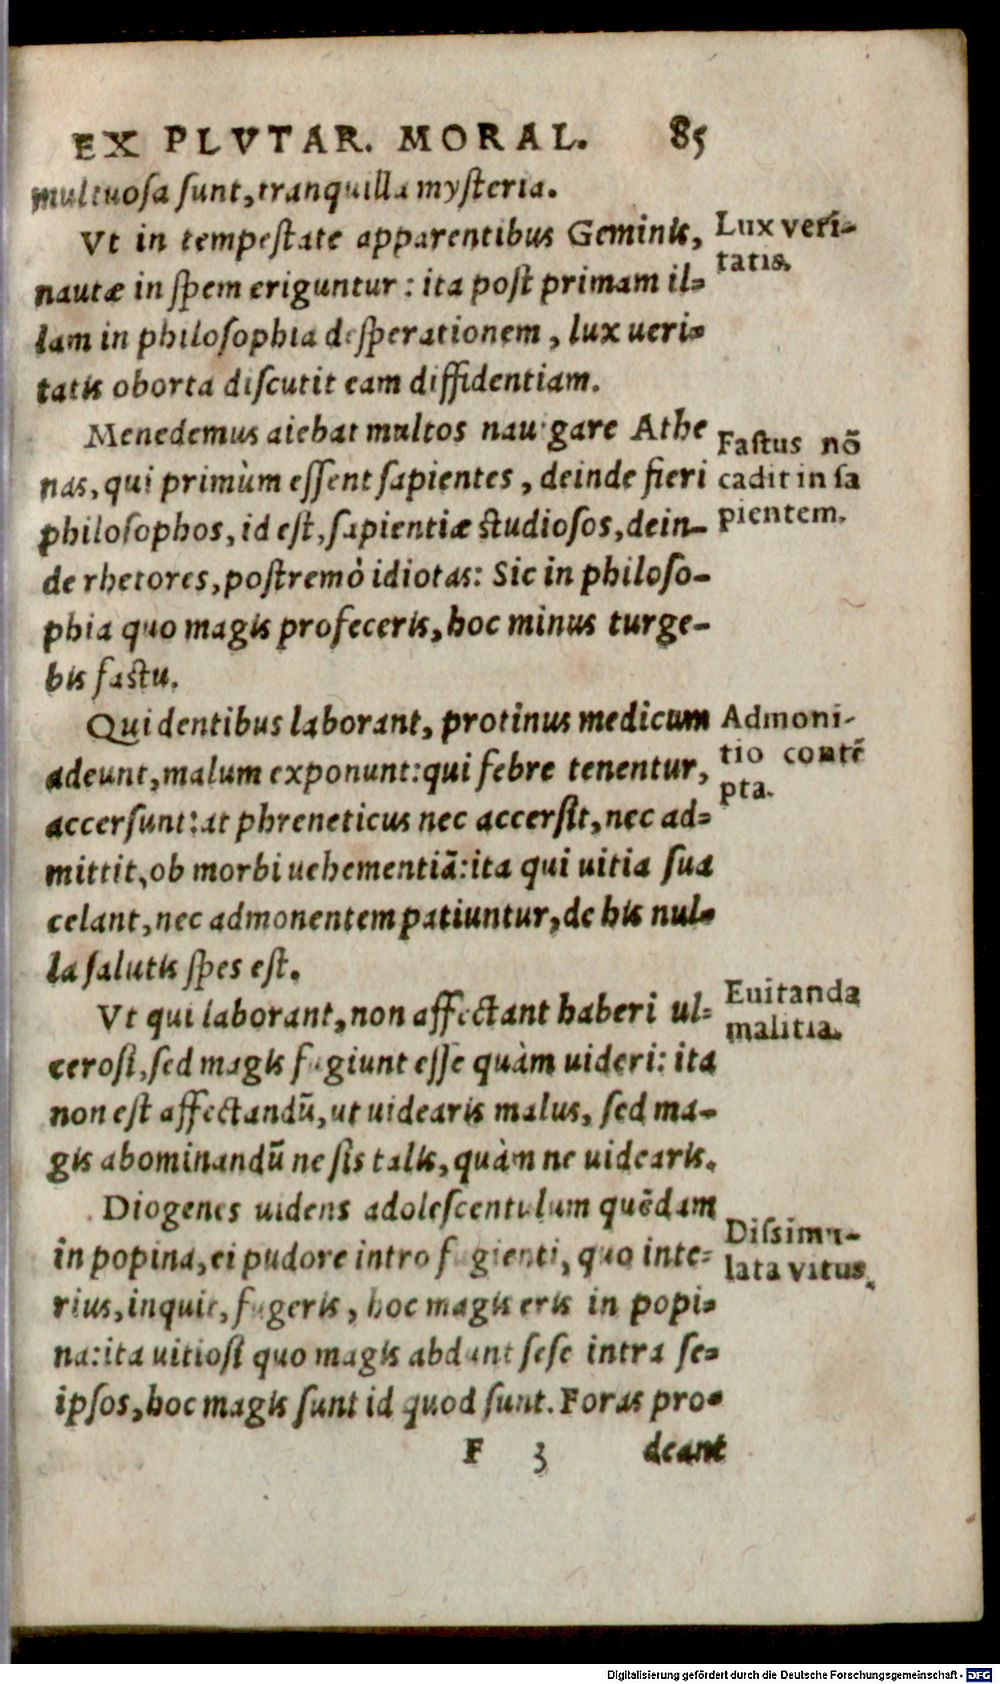 EX PLVTAR. MORAL. 85
multuosa sunt, tranquilla mysteria.
Vt in tempestate apparentibus Geminis,
nautæ in spem eriguntur: ita post primam il=
lam in philosophia desperationem, lux ueri=
tatis oborta discutit eam diffidentiam.
Lux veri-
tatis.
Menedemus aiebat multos nauigare Athe
nas, qui primùm essent sapientes, deinde fieri
philosophos, id est, sapientiæ studiosos, dein-
de rhetores, postremò idiotas: Sic in philoso-
phia quo magis profeceris, hoc minus turge-
bis fastu.
Fastus nō
cadit in sa
pientem.
Qui dentibus laborant, protinus medicum
adeunt, malum exponunt: qui febre tenentur,
accersunt: at phreneticus nec accersit, nec ad=
mittit, ob morbi uehementiā: ita qui uitia sua
celant, nec admonentem patiuntur, de his nul=
la salutis spes est.
Admoni-
tio contē
pta.
Vt qui laborant, non affectant haberi ul=
cerosi, sed magis fugiunt esse quàm uideri: ita
non est affectandū, ut uidearis malus, sed ma-
gis abominandū ne sis talis, quàm ne uidearis.
Euitanda
malitia.
Diogenes uidens adolescentulum quēdam
in popina, ei pudore intro fugienti, quo inte=
rius, inquit, fugeris, hoc magis eris in popi=
na: ita uitiosi quo magis abdunt sese intra se=
ipsos, hoc magis sunt id quod sunt. Foras pro=
Dissimu-
lata vitus.
F 3 deant
Digitalisierung gefördert durch die Deutsche Forschungsgemeinschaft - DFG